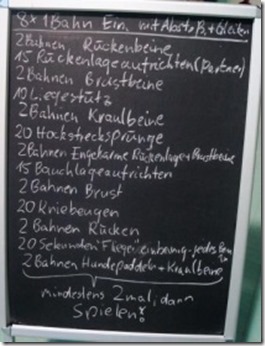 8 x 1 Bahn Ein. mit Abstoß, + Gleiten
2 Bahnen Rückenbeine
15 Rückenlageaufrichten (Partner)
2 Bahnen Brustbeine
10 Liegestütz
2 Bahnen Kraulbeine
20 Hockstrecksprünge
2 Bahnen Engekarme Rückenlage + Brustbeine
15 Bauchlageaufrichten
2 Bahnen Brust
20 Kniebeugen
2 Bahnen Rücken
20 Sekunden Flieger einbeinig - jedes Bein
2 Bahnen Hundepaddeln + Kraulbeine
mindestens 2 mal, dann
Spielen!